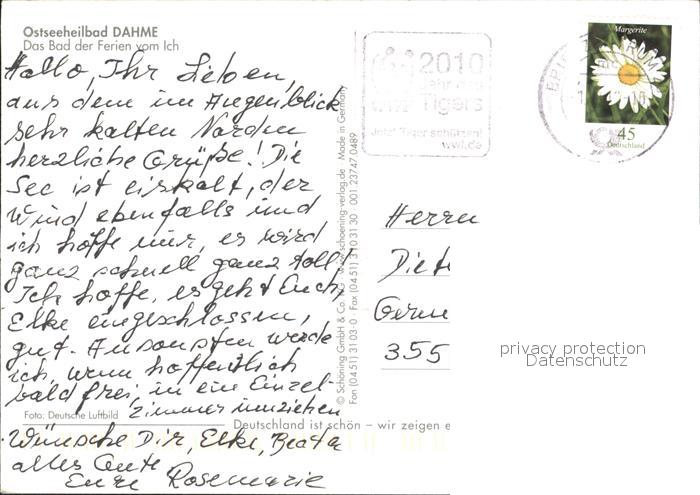 Ostseeheilbad DAHME
Das Bad der Ferien vom Ich
Hallo, Ihr Lieben,
aus dem im Augenblick
sehr kalten Norden
herzliche Grüße! Die
See ist eiskalt, der
Wind ebenfalls und
ich hoffe nur, es wird
ganz schnell ganz toll!
Ich hoffe, es geht Euch,
Elke eingeschlossen,
gut. Ansonsten werde
ich, wenn hoffentlich
bald frei, in ein Einzel-
zimmer umziehen
Foto: Deutsche Luftbild
Wünsche Dir, Elke, Beata
alles Gute
Eure Rosemarie
Deutschland ist schön – wir zeigen e
© Schöning GmbH & Co. KG · www.schoening-verlag.de Made in Germany
Fon (04 51) 3 10 3-0 · Fax (04 51) 3 10 31 30 001 23747 0489
2010
Jahr des
Tigers
Jetzt Tiger schützen!
wwf.de
Margerite
45
Deutschland
Herrn
Diet
355
privacy protection
Datenschutz